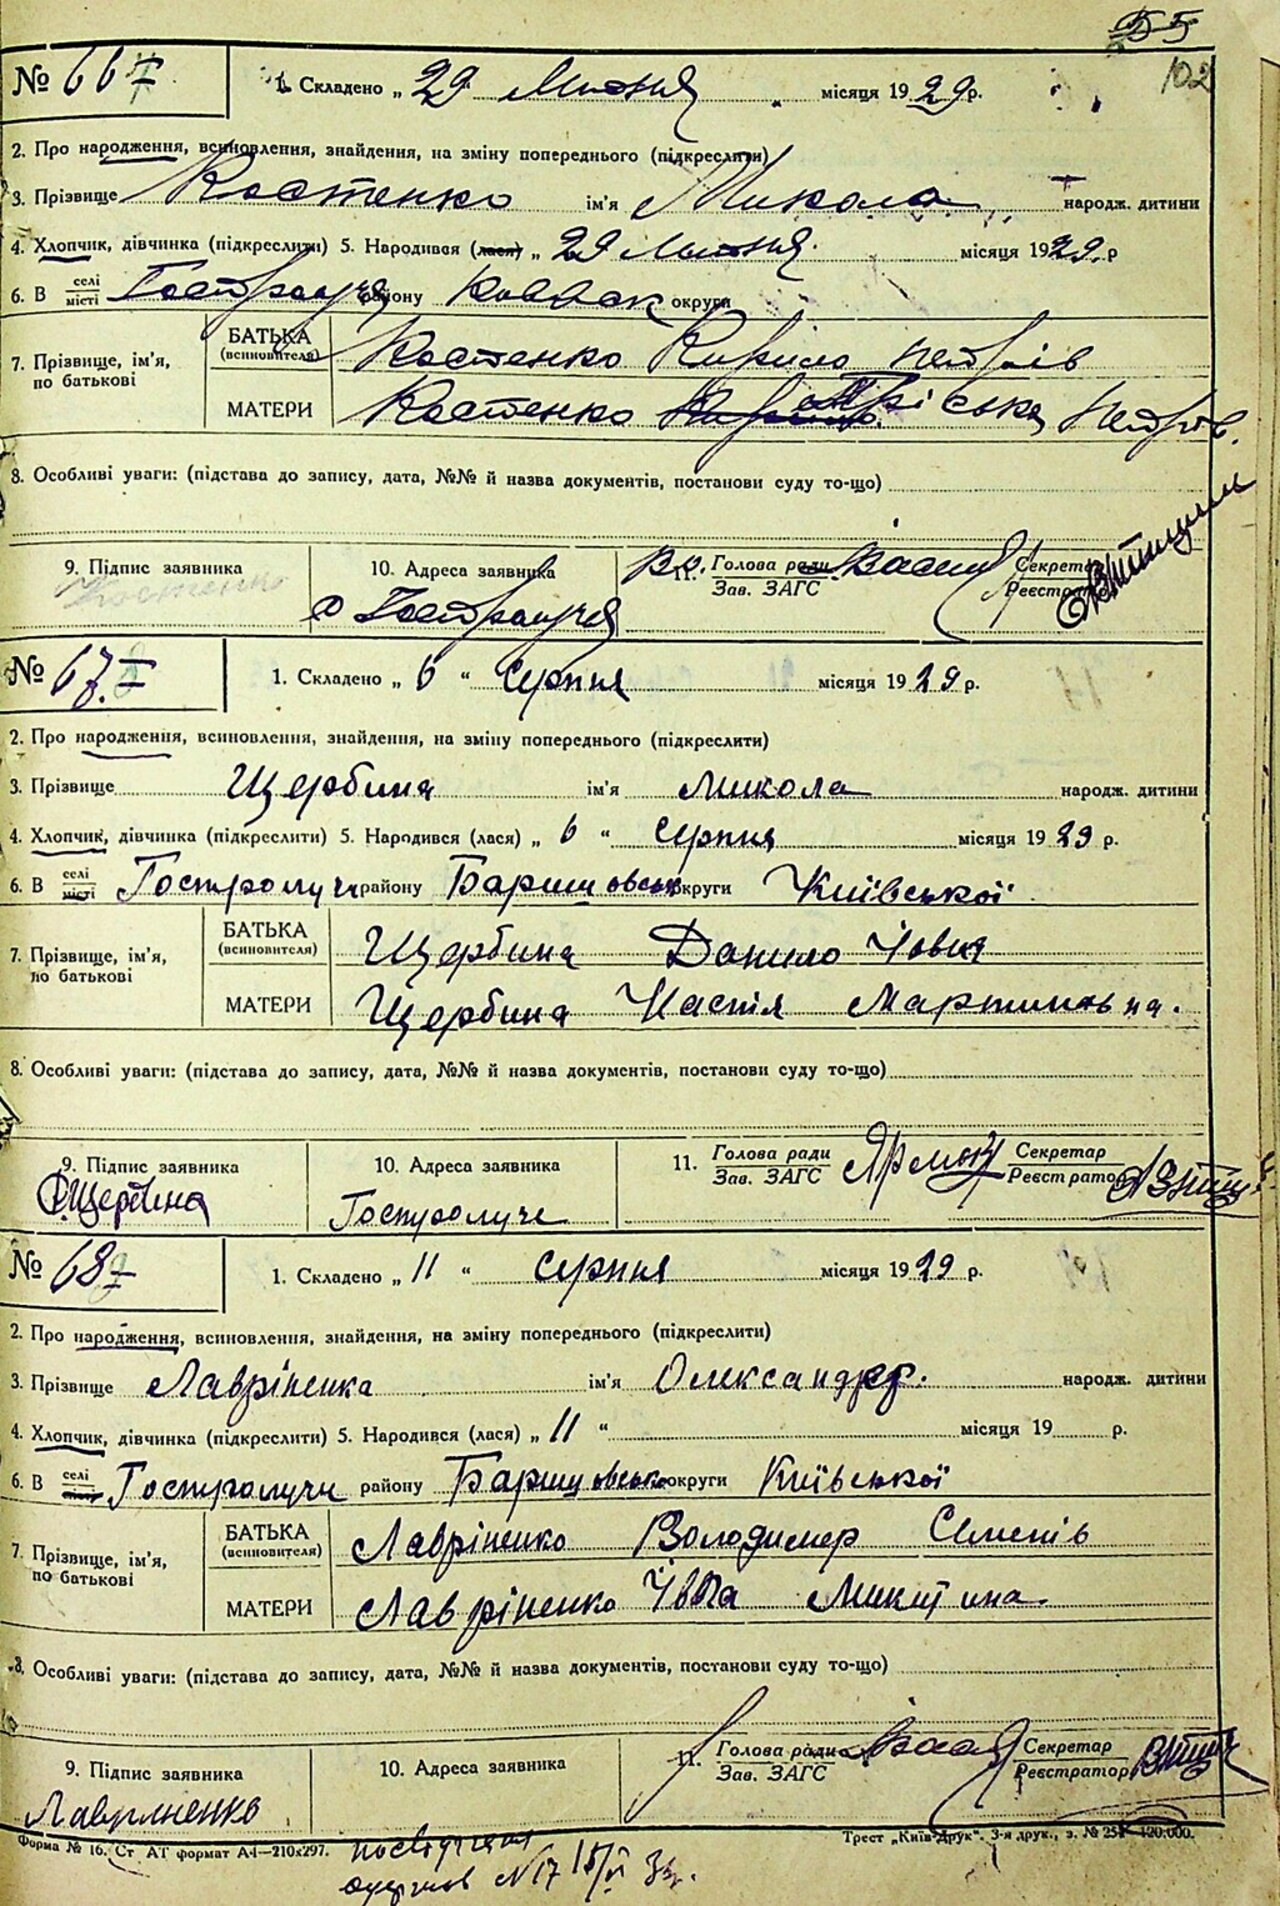 55
102
№ 66
1. Складено „ 29 " Липня місяця 1929 р.
2. Про народження, всиновлення, знайдення, на зміну попереднього (підкреслити)
3. Прізвище Костенко ім'я Микола народж. дитини
4. Хлопчик, дівчинка (підкреслити) 5. Народився (лася) „ 29 Липня місяця 1929 р
6. В селі/місті району округи
БАТЬКА
(всиновителя) Костенко Кирило Петрів
7. Прізвище, ім'я,
по батькові
МАТЕРИ Костенко Пріська Петрів.
8. Особливі уваги: (підстава до запису, дата, №№ й назва документів, постанови суду то-що)
9. Підпис заявника 10. Адреса заявника 11. Голова ради Секретар
Зав. ЗАГС Реєстратор
Костенко с Гостролуччя
№ 67
1. Складено „ 6 " серпня місяця 1929 р.
2. Про народження, всиновлення, знайдення, на зміну попереднього (підкреслити)
3. Прізвище Щербина ім'я Микола народж. дитини
4. Хлопчик, дівчинка (підкреслити) 5. Народився (лася) „ 6 " серпня місяця 1929 р.
6. В селі/місті Гостролучи району Баришовськ округи Київської
БАТЬКА
(всиновителя) Щербина Данило Йовня
7. Прізвище, ім'я,
по батькові
МАТЕРИ Щербина Настя Мартиновна.
8. Особливі уваги: (підстава до запису, дата, №№ й назва документів, постанови суду то-що)
9. Підпис заявника 10. Адреса заявника 11. Голова ради Секретар
Зав. ЗАГС Реєстратор
Щербина Гостролуче
№ 68
1. Складено „ 11 " серпня місяця 1929 р.
2. Про народження, всиновлення, знайдення, на зміну попереднього (підкреслити)
3. Прізвище Лавріненка ім'я Олександр. народж. дитини
4. Хлопчик, дівчинка (підкреслити) 5. Народився (лася) „ 11 " місяця 19 р.
6. В селі/місті Гостролучи району Баришовськ округи Київської
БАТЬКА
(всиновителя) Лавріненко Володимер Семенів
7. Прізвище, ім'я,
по батькові
МАТЕРИ Лавріненко Івга Микитина.
8. Особливі уваги: (підстава до запису, дата, №№ й назва документів, постанови суду то-що)
9. Підпис заявника 10. Адреса заявника 11. Голова ради Секретар
Зав. ЗАГС Реєстратор
Лавриненко
Форма № 16. Ст. АТ формат А4—210х297. Трест „Київ-Друк". 3-я друк., з. № 251—120.000.